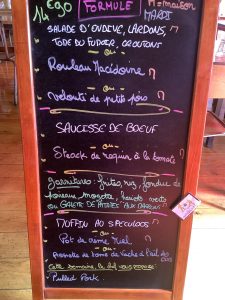 14€90 FORMULE π=maison
MARDI
SALADE D'ENDIVE, LARDONS,
TOME DU FUMOIR, CROUTONS
ou
Rouleau Macédoine
ou
Velouté de petits pois
SAUCISSE DE BOEUF
ou
Steack de requin à la tomate
garnitures: frites, riz, fondue de
poireau, haricots verts
ou GALETE DE PATATES AUX
MUFFIN AU SPECULOOS
ou
Pot de creme Miel
ou
Assiette de tome de Vache à l'ail des
Cette semaine, le chef vous propose:
Pulled Pork